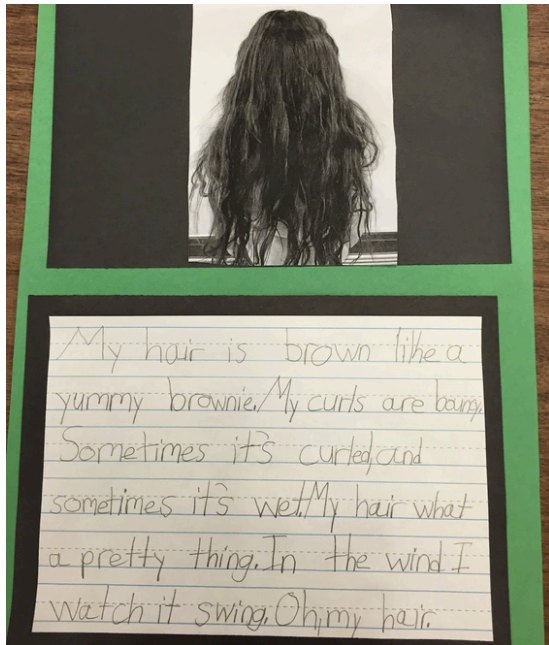 My hair is brown like a
yummy brownie. My curls are bouncy.
Sometimes it's curled, and
sometimes it's wet. My hair what
a pretty thing. In the wind I
watch it swing. Oh, my hair.